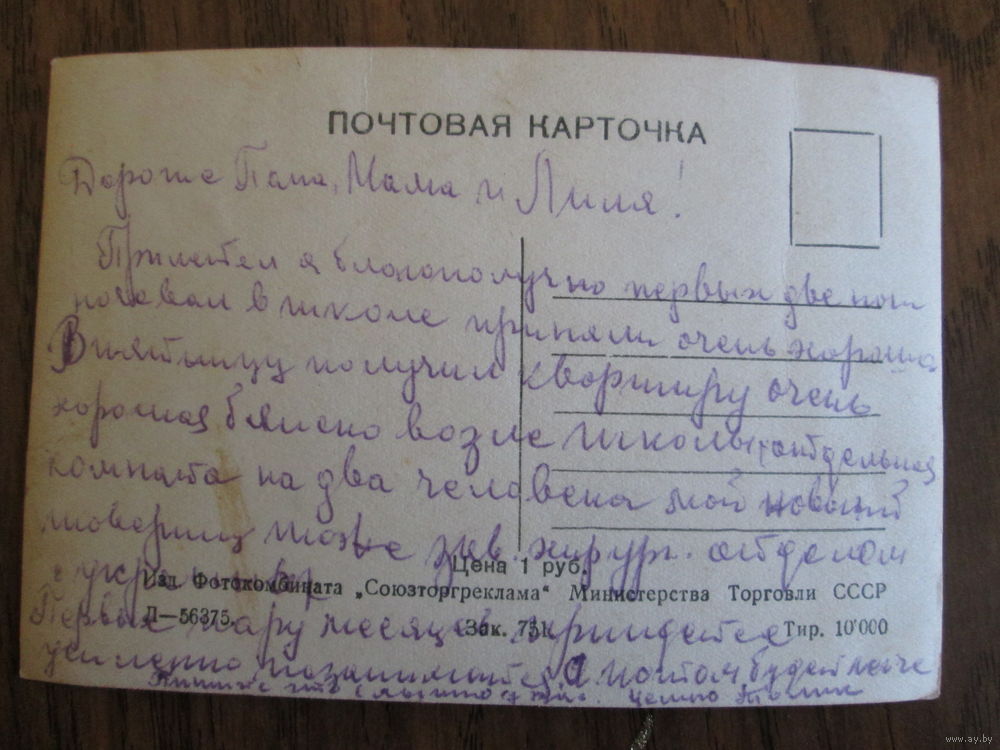 ПОЧТОВАЯ КАРТОЧКА
Дорогие Папа, Мама и Лиля!
Прилетел я благополучно первых две ночи
ночевал в школе приняли очень хорошо
В пятницу получил квартиру очень
хорошая близко возле школы, отдельная
комната на два человека мой новый
товарищ тоже зав. хирург. отделом
с украины
Цена 1 руб.
Изд. Фотокомбината „Союзторгреклама“ Министерства Торговли СССР
Л—56375. Зак. 751. Тир. 10'000
Первые пару месяцев придется
усиленно позаниматся а потом будет легче
Пишите что слышно у вас. Целую
www.ay.by